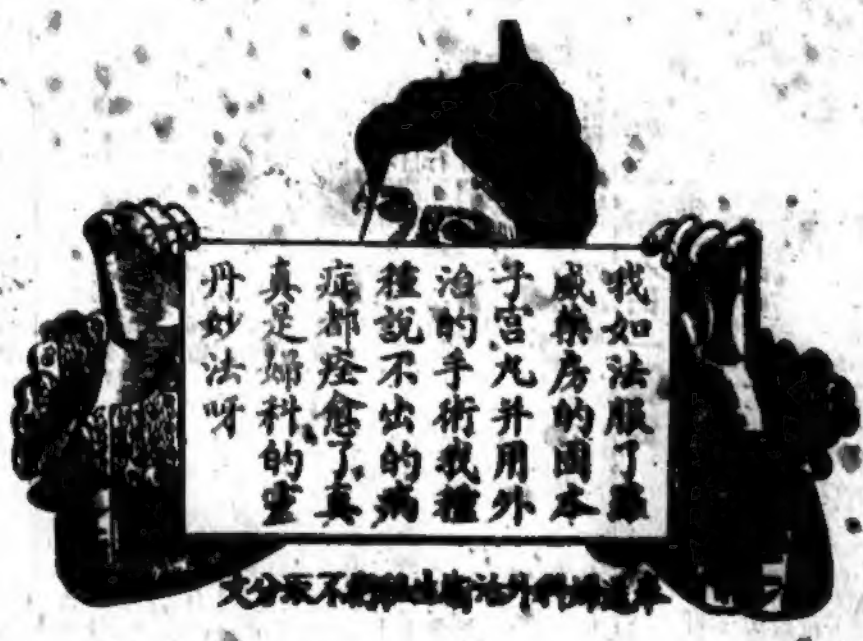 我如法服了羅
威藥房的固本
子宮丸并用外
治的手術我種
種說不出的病
症都痊愈了真
真是婦科的靈
丹妙法呀
送婦科外治術不取分文